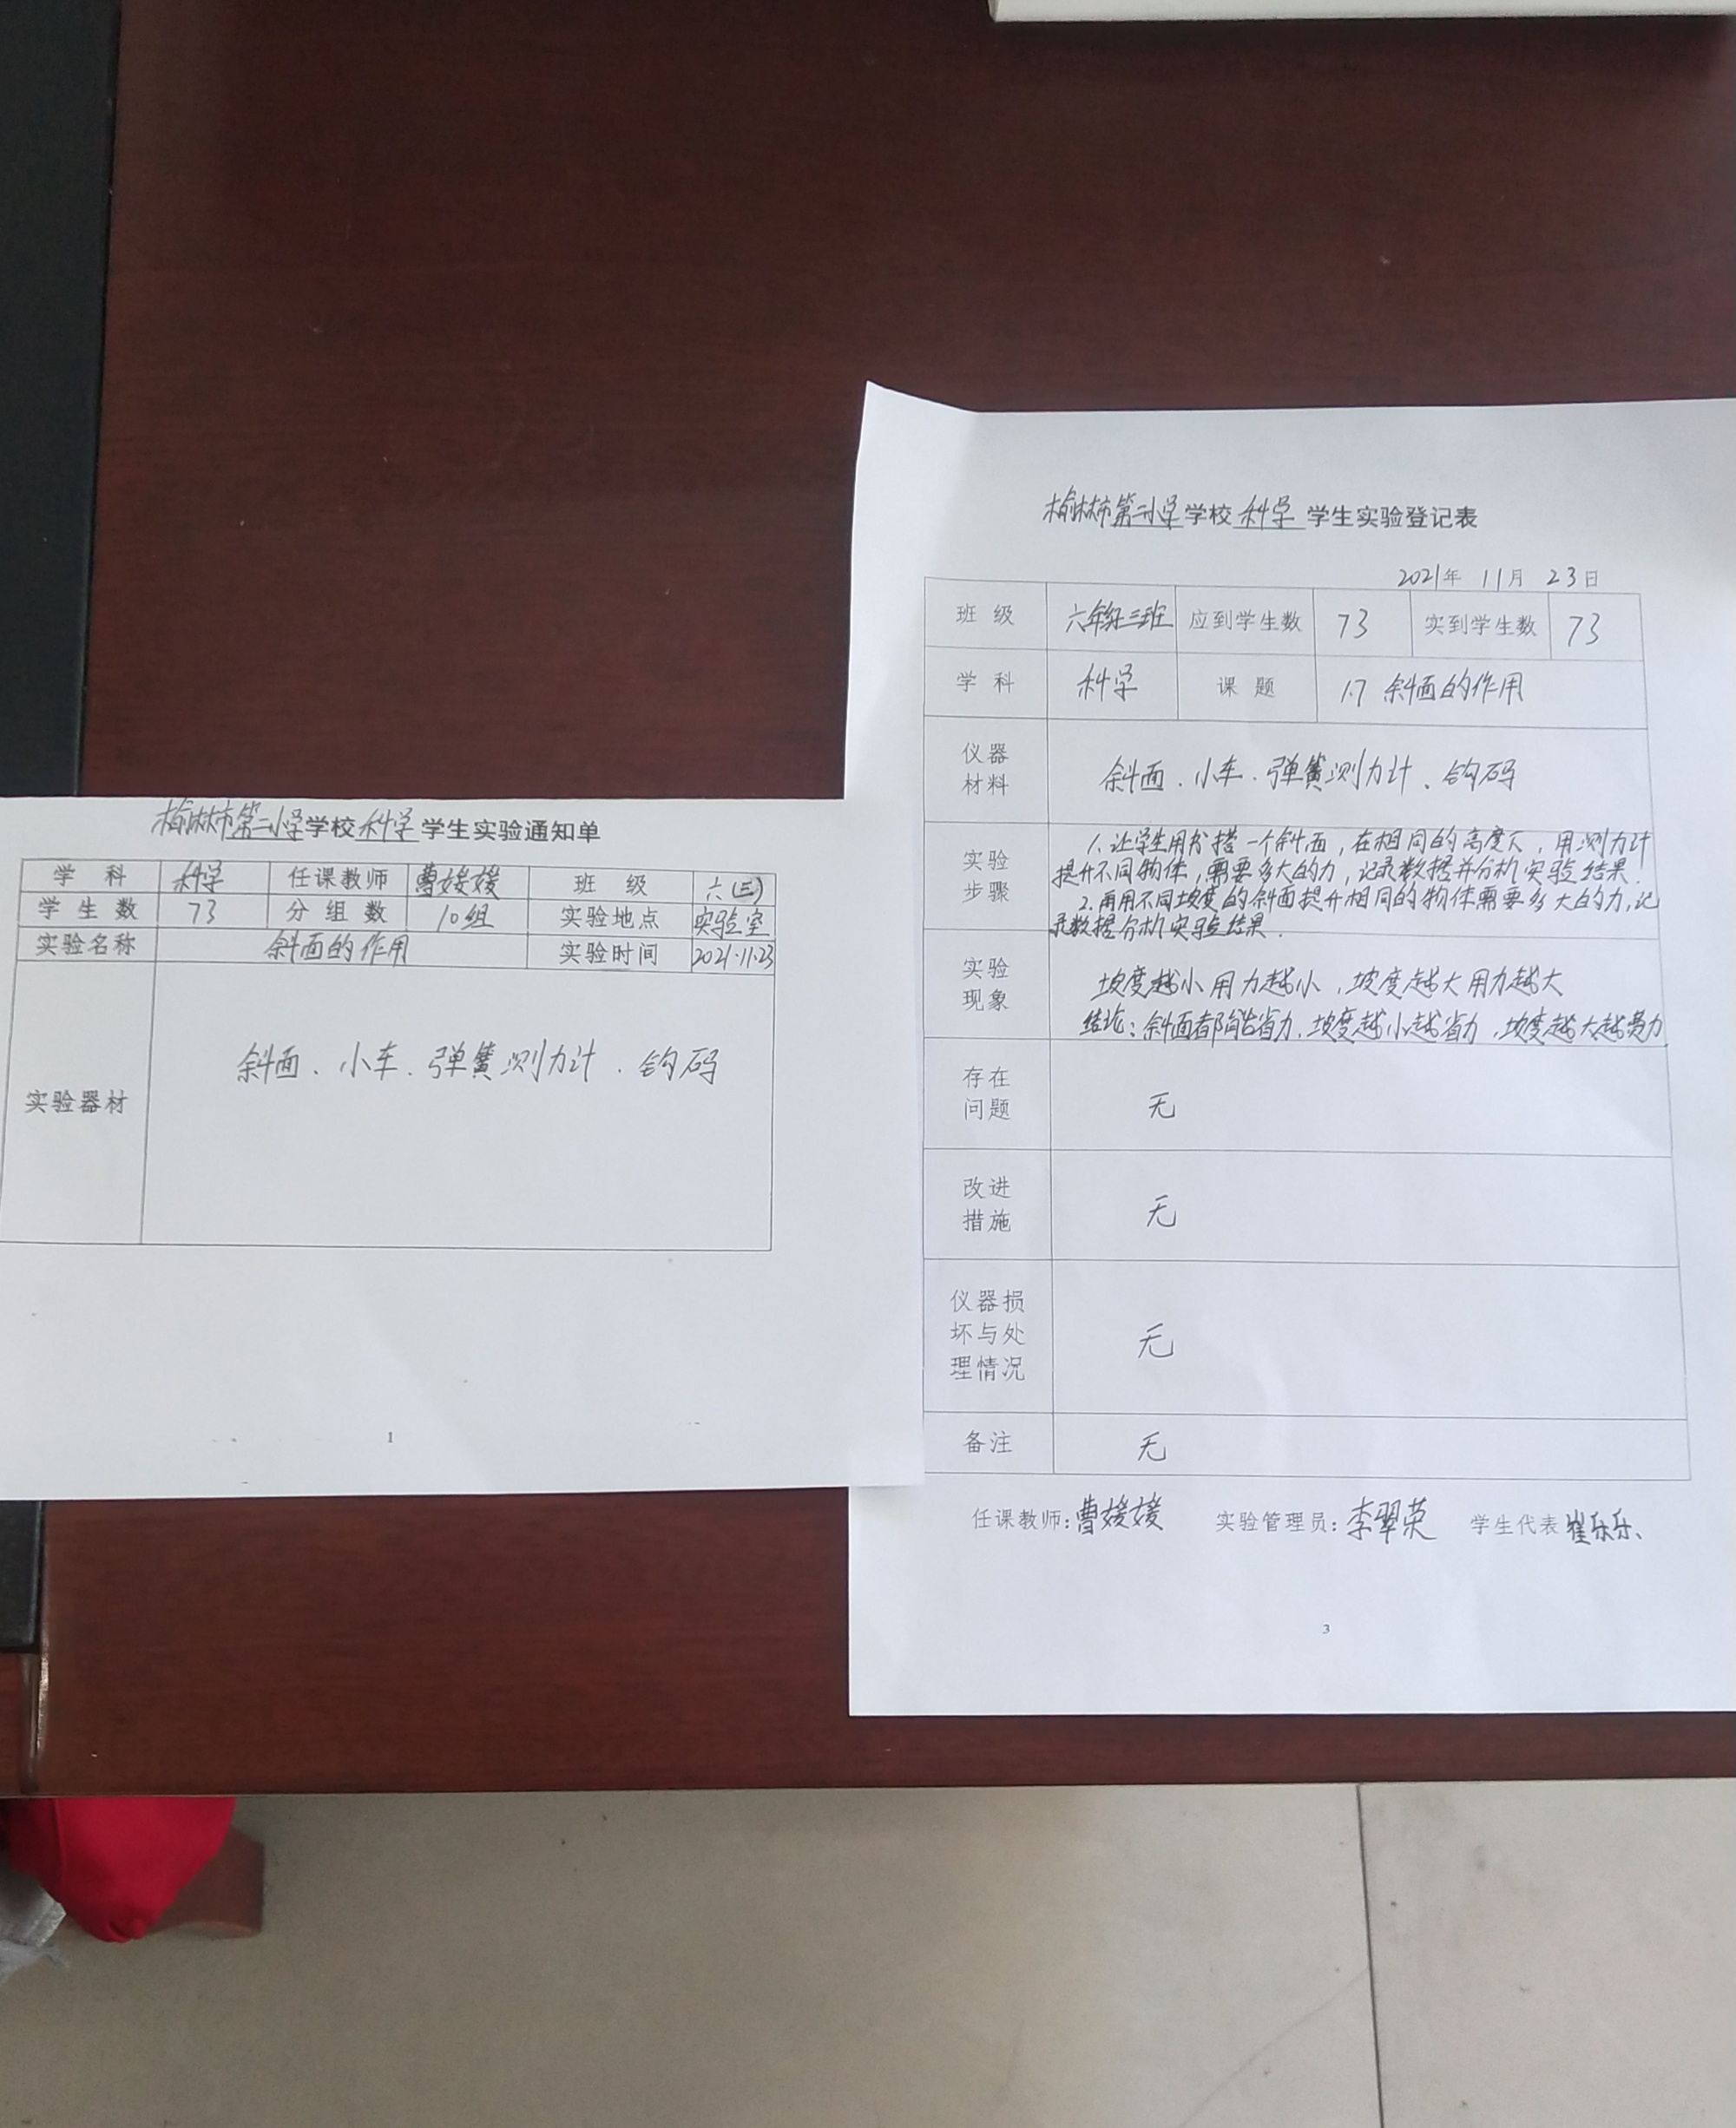 榆林市第二小学学校科学学生实验通知单
学科 科学 任课教师 曹媛媛 班级 六(三)
学生数 73 分组数 10组 实验地点 实验室
实验名称 斜面的作用 实验时间 2021.11.23
实验器材 斜面、小车、弹簧测力计、钩码
1
榆林市第二小学学校科学学生实验登记表
2021年 11月 23日
班级 六年级三班 应到学生数 73 实到学生数 73
学科 科学 课题 1.7 斜面的作用
仪器
材料
斜面、小车、弹簧测力计、钩码
实验
步骤
1.让学生用书搭一个斜面,在相同的高度下,用测力计
提升不同物体,需要多大的力,记录数据并分析实验结果.
2.再用不同坡度的斜面提升相同的物体需要多大的力,记
录数据分析实验结果.
实验
现象
坡度越小用力越小,坡度越大用力越大
结论:斜面都能省力.坡度越小越省力,坡度越大越费力
存在
问题
无
改进
措施
无
仪器损
坏与处
理情况
无
备注 无
任课教师:曹媛媛 实验管理员:李翠英 学生代表 崔乐乐、
3